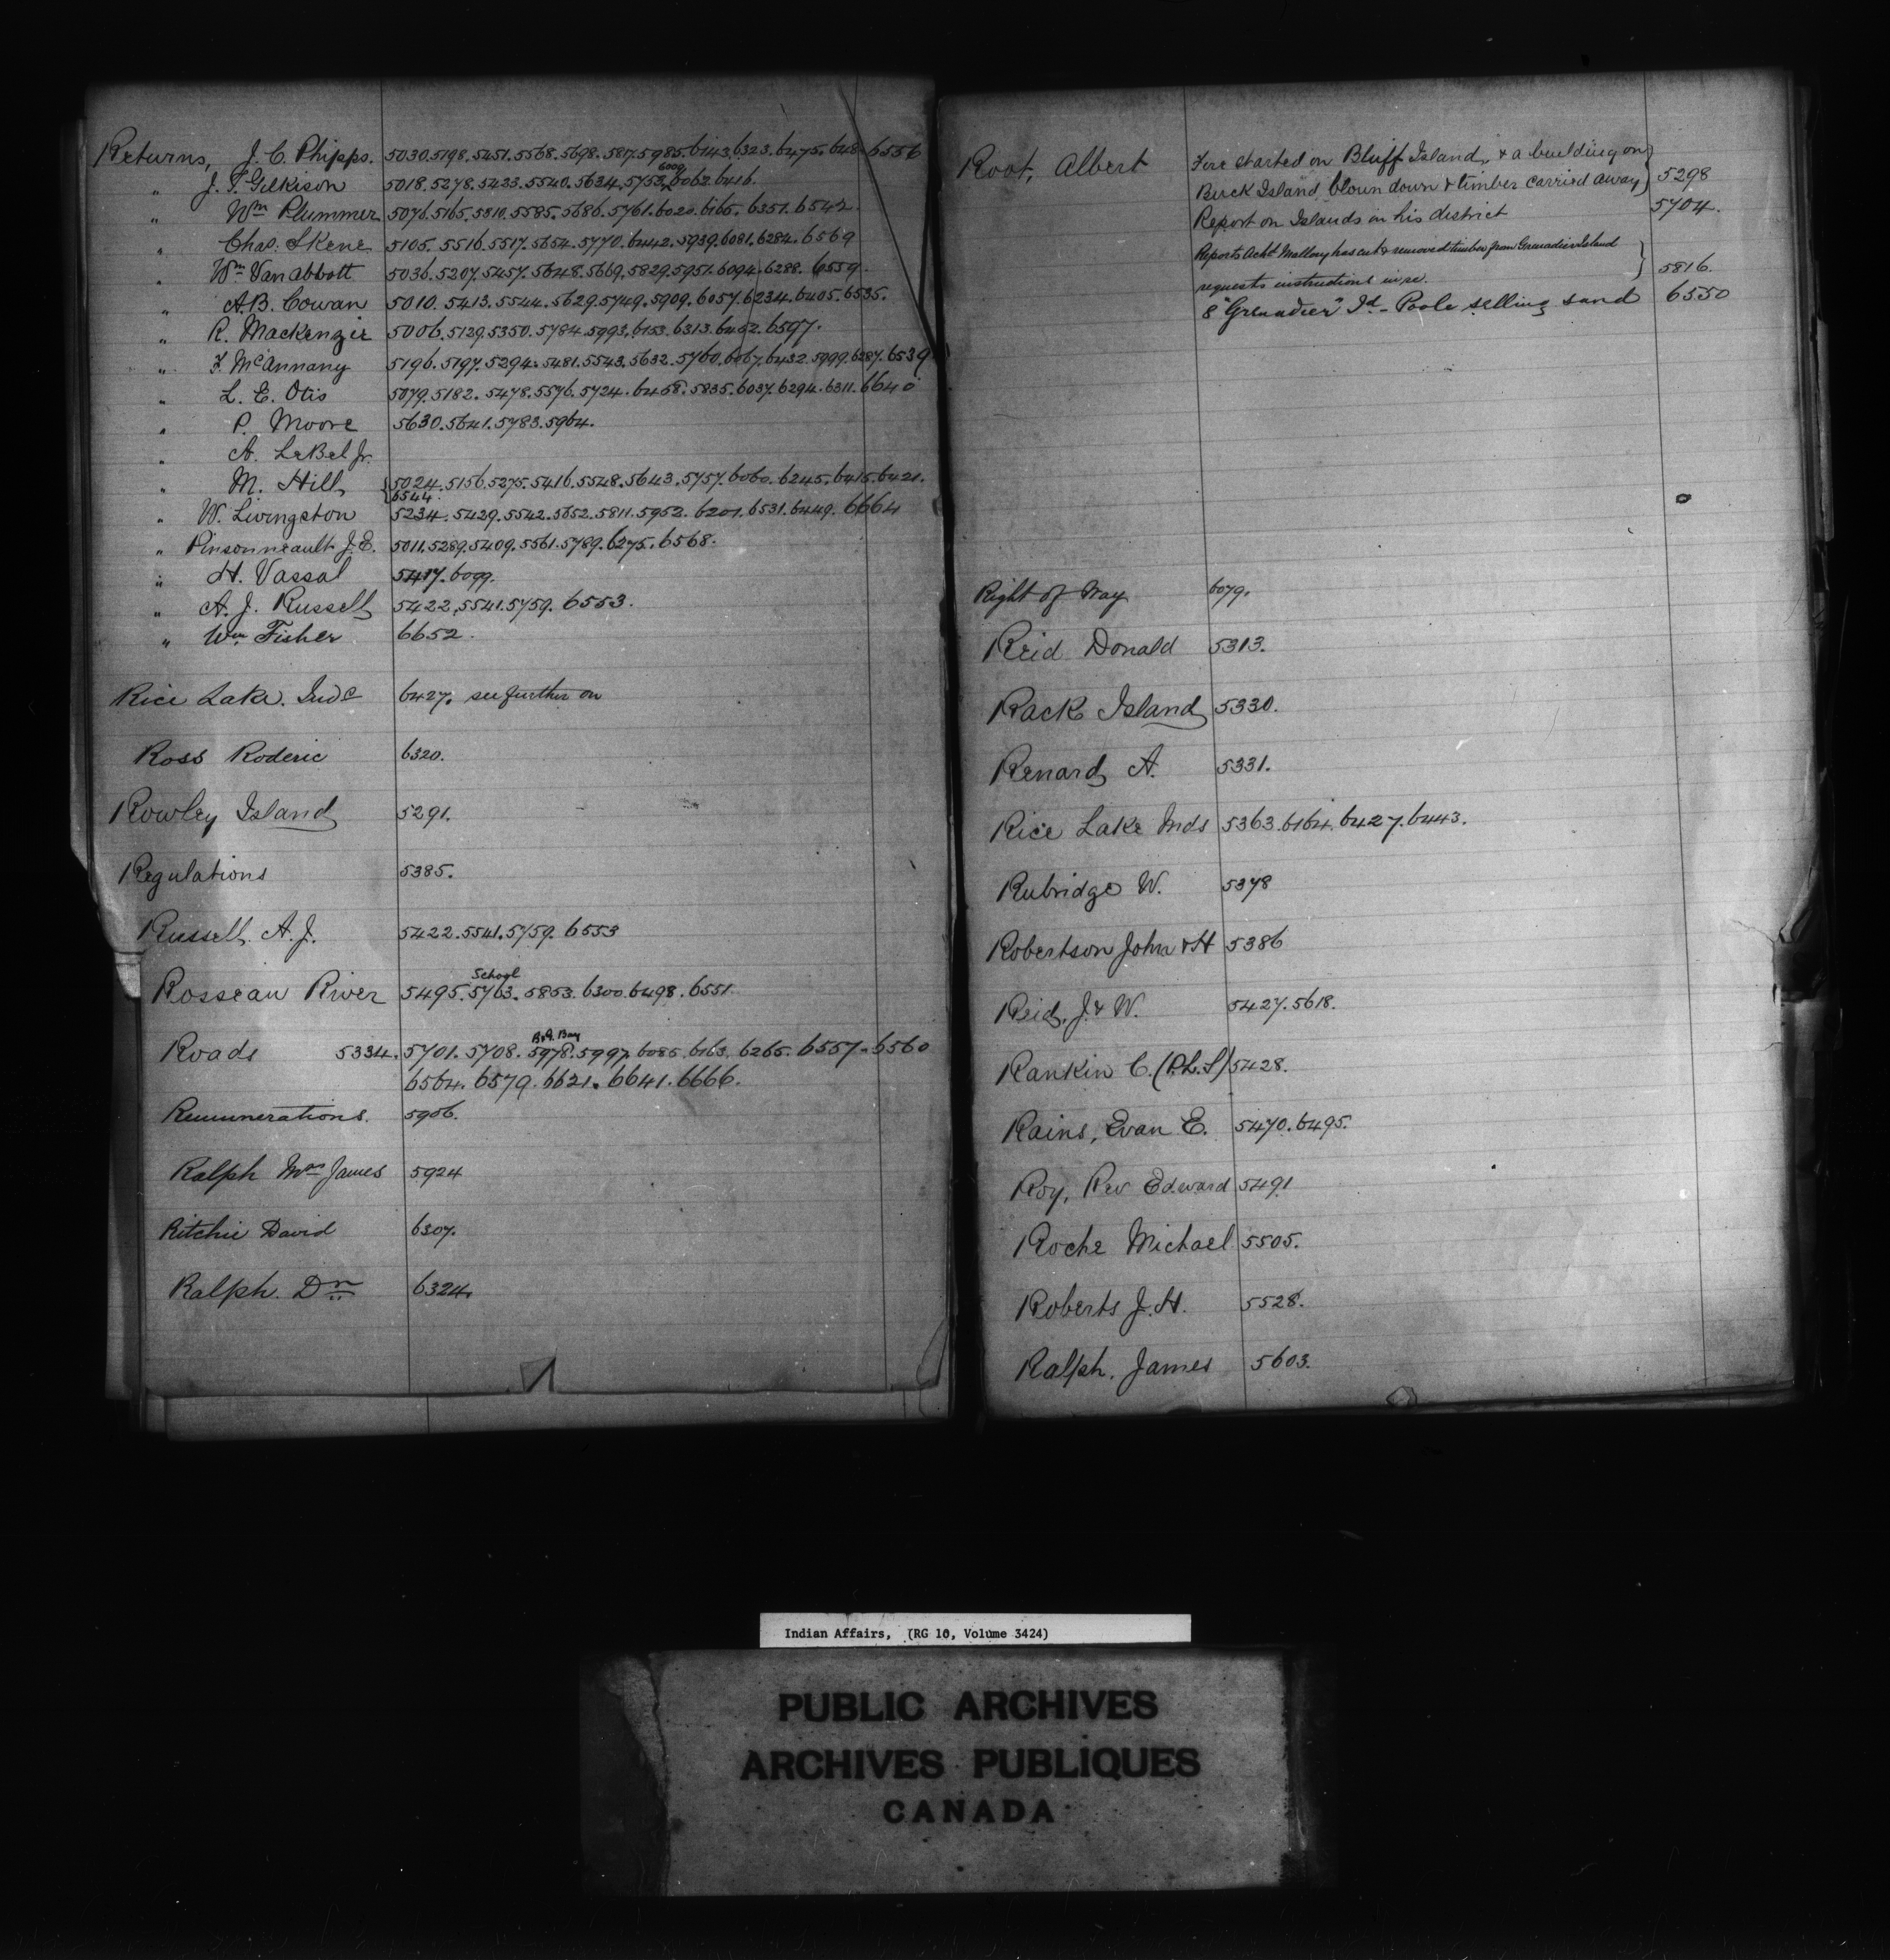 Returns, J. C. Phipps. 5030.5198.5451.5568.5698.5817.5985.6143.6323.6475.648 6556
6009
" J. T. Gilkison 5018.5278.5423.5540.5634.5753.6062.6416.
" Wm Plummer 5076.5165.5810.5585.5686.5761.6020.6165.6351.6542.
" Chas. Skene 5105.5516.5517.5654.5770.6442.5939.6081.6284.6569
" Wm Van abbott 5036.5207.5457.5648.5669.5829.5951.6094.6288.6559.
" A.B. Cowan 5010.5413.5544.5629.5749.5909.6057.6234.6405.6535.
" R. Mackenzie 5006.5129.5350.5784.5993.6153.6313.6462.6597.
" F. McAnnany 5196.5197.5294.5481.5543.5632.5760.6067.6432.5999.6287.6539
" L. E. Otis 5079.5182.5478.5576.5724.6468.5835.6037.6294.6311.6640
" P. Moore 5630.5641.5783.5964.
" A. LeBel Jr.
" M. Hill 5024.5156.5275.5416.5548.5643.5757.6060.6245.6415.6421.
6544.
" W. Livingston 5234.5429.5542.5652.5811.5952.6201.6531.6449.6664
" Pinsonneault J.E. 5011.5289.5409.5561.5789.6275.6568.
" H. Vassal 5417.6099.
" A. J. Russell 5422.5541.5759.6553.
" Wm Fisher 6652.
Rice Lake. Inds 6427. see further on
Ross Roderic 6320.
Rowley Island 5291.
Regulations 5385.
Russell. A. J. 5422.5541.5759.6553
School
Rosseau River 5495.5763.5853.6300.6498.6551
B.Q. Bay
Roads 5334.5701.5708.5978.5997.6085.6163.6265.6557.6560
6564.6579.6621.6641.6666.
Remunerations. 5906.
Ralph Mrs James 5924
Ritchie David 6307.
Ralph. Dn 6324.
Root, Albert Fire started on Bluff Island, & a building on
Buck Island blown down & timber carried away 5298
Report on Islands in his district 5704.
Reports Mallory has cut & removed timber from Grenadier Island
requests instructions in re. 5816.
8 "Grenadier" Id - Poole selling sand 6550
Right of Way 6079.
Reid Donald 5313.
Rack Island 5330.
Renard A. 5331.
Rice Lake Inds 5363.6164.6427.6443.
Rubridge W. 5378
Robertson John & H 5386
Reid, J. & W. 5427.5618.
Rankin C. (P.L.S) 5428.
Rains, Evan E. 5470.6495.
Roy, Rev Edward 5491
Roche Michael 5505.
Roberts J. H. 5528.
Ralph. James 5603.
Indian Affairs, (RG 10, Volume 3424)
PUBLIC ARCHIVES
ARCHIVES PUBLIQUES
CANADA